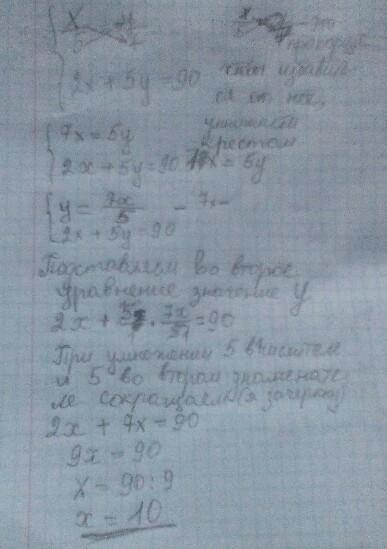 x/5 = y/7
x/5 = y/7 это
пропорция
2x + 5y = 90
чтобы избавит
ся от неё,
умножаем
крестом
7x = 5y
2x + 5y = 90 7x = 5y
y = 7x/5 - 7x -
2x + 5y = 90
Подставляем во второе
уравнение значение y
2x + 5/1 · 7x/51 = 90
При умножении 5 в числителе
и 5 во втором знаменате
ле сокращаем (я зачеркну)
2x + 7x = 90
9x = 90
x = 90 : 9
x = 10